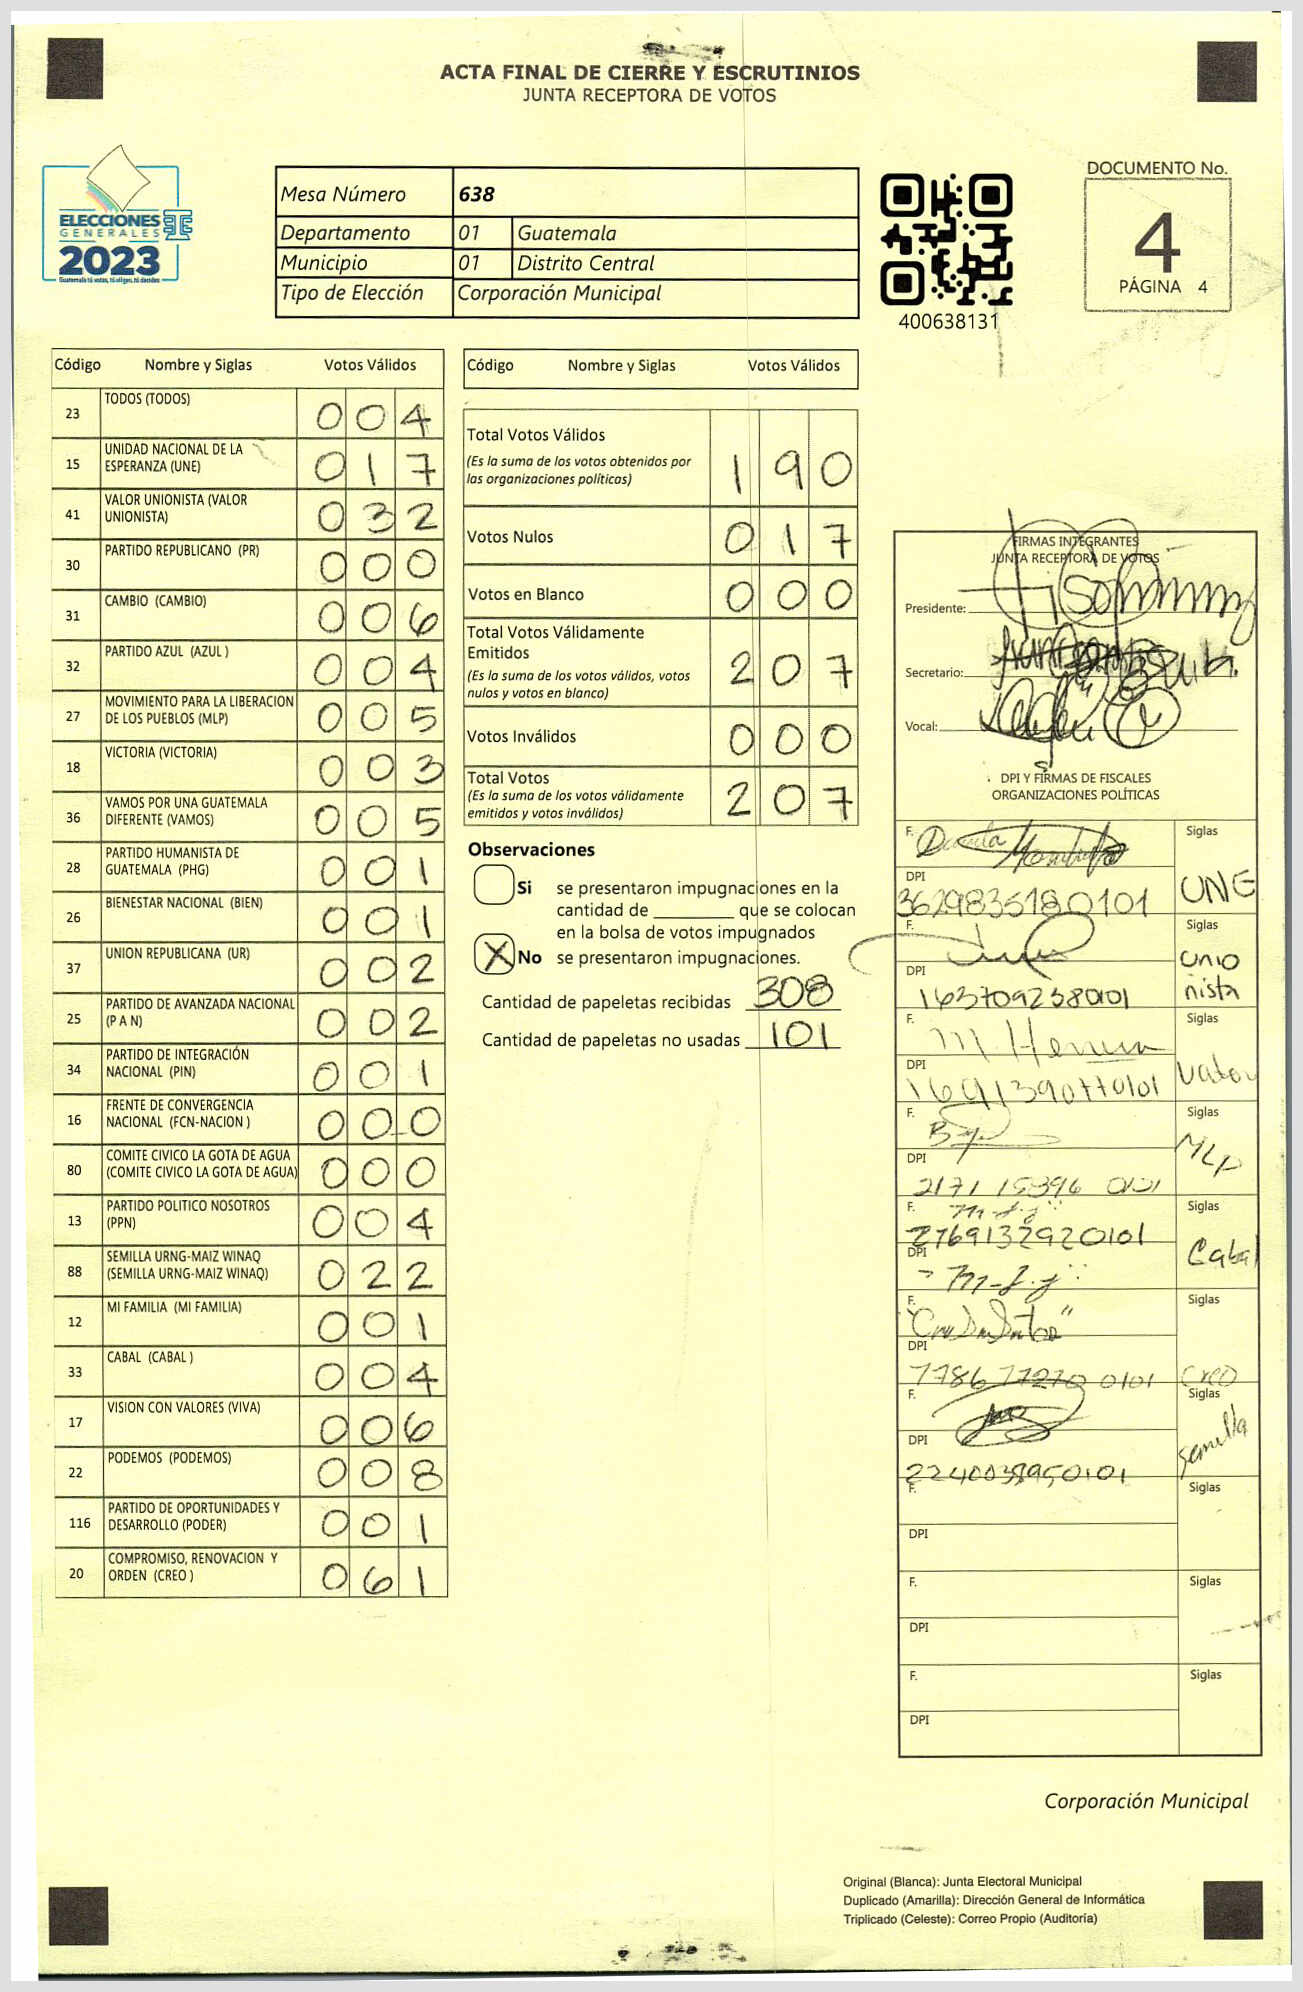 ACTA FINAL DE CIERRE Y ESCRUTINIOS
JUNTA RECEPTORA DE VOTOS
ELECCIONES
GENERALES
2023
Guatemala tú votas, tú eliges, tú decides
Mesa Número 638
Departamento 01 Guatemala
Municipio 01 Distrito Central
Tipo de Elección Corporación Municipal
400638131
DOCUMENTO No.
4
PÁGINA 4
Código Nombre y Siglas Votos Válidos
23 TODOS (TODOS) 0 0 4
15 UNIDAD NACIONAL DE LA
ESPERANZA (UNE) 0 1 7
41 VALOR UNIONISTA (VALOR
UNIONISTA) 0 3 2
30 PARTIDO REPUBLICANO (PR) 0 0 0
31 CAMBIO (CAMBIO) 0 0 6
32 PARTIDO AZUL (AZUL ) 0 0 4
27 MOVIMIENTO PARA LA LIBERACION
DE LOS PUEBLOS (MLP) 0 0 5
18 VICTORIA (VICTORIA) 0 0 3
36 VAMOS POR UNA GUATEMALA
DIFERENTE (VAMOS) 0 0 5
28 PARTIDO HUMANISTA DE
GUATEMALA (PHG) 0 0 1
26 BIENESTAR NACIONAL (BIEN) 0 0 1
37 UNION REPUBLICANA (UR) 0 0 2
25 PARTIDO DE AVANZADA NACIONAL
(P A N) 0 0 2
34 PARTIDO DE INTEGRACIÓN
NACIONAL (PIN) 0 0 1
16 FRENTE DE CONVERGENCIA
NACIONAL (FCN-NACION ) 0 0 0
80 COMITE CIVICO LA GOTA DE AGUA
(COMITE CIVICO LA GOTA DE AGUA) 0 0 0
13 PARTIDO POLITICO NOSOTROS
(PPN) 0 0 4
88 SEMILLA URNG-MAIZ WINAQ
(SEMILLA URNG-MAIZ WINAQ) 0 2 2
12 MI FAMILIA (MI FAMILIA) 0 0 1
33 CABAL (CABAL ) 0 0 4
17 VISION CON VALORES (VIVA) 0 0 6
22 PODEMOS (PODEMOS) 0 0 8
116 PARTIDO DE OPORTUNIDADES Y
DESARROLLO (PODER) 0 0 1
20 COMPROMISO, RENOVACION Y
ORDEN (CREO ) 0 6 1
Código Nombre y Siglas Votos Válidos
Total Votos Válidos
(Es la suma de los votos obtenidos por
las organizaciones políticas) 1 9 0
Votos Nulos 0 1 7
Votos en Blanco 0 0 0
Total Votos Válidamente
Emitidos
(Es la suma de los votos válidos, votos
nulos y votos en blanco) 2 0 7
Votos Inválidos 0 0 0
Total Votos
(Es la suma de los votos válidamente
emitidos y votos inválidos) 2 0 7
Observaciones
Si se presentaron impugnaciones en la
cantidad de ________ que se colocan
en la bolsa de votos impugnados
X No se presentaron impugnaciones.
Cantidad de papeletas recibidas 308
Cantidad de papeletas no usadas 101
FIRMAS INTEGRANTES
JUNTA RECEPTORA DE VOTOS
Presidente:
Secretario:
Vocal:
DPI Y FIRMAS DE FISCALES
ORGANIZACIONES POLÍTICAS
F. Siglas
DPI UNE
3629835180101
F. Siglas
DPI Unio
nista
1637092380101
F. Siglas
DPI Valor
1691390770101
F. Siglas
DPI MLP
2171 15396 0101
F. Siglas
2769132920101
DPI Cabal
F. Siglas
DPI
7786 77270 0101 Creo
F. Siglas
DPI Semilla
2240038950101
F. Siglas
DPI
F. Siglas
DPI
F. Siglas
DPI
Corporación Municipal
Original (Blanca): Junta Electoral Municipal
Duplicado (Amarilla): Dirección General de Informática
Triplicado (Celeste): Correo Propio (Auditoría)